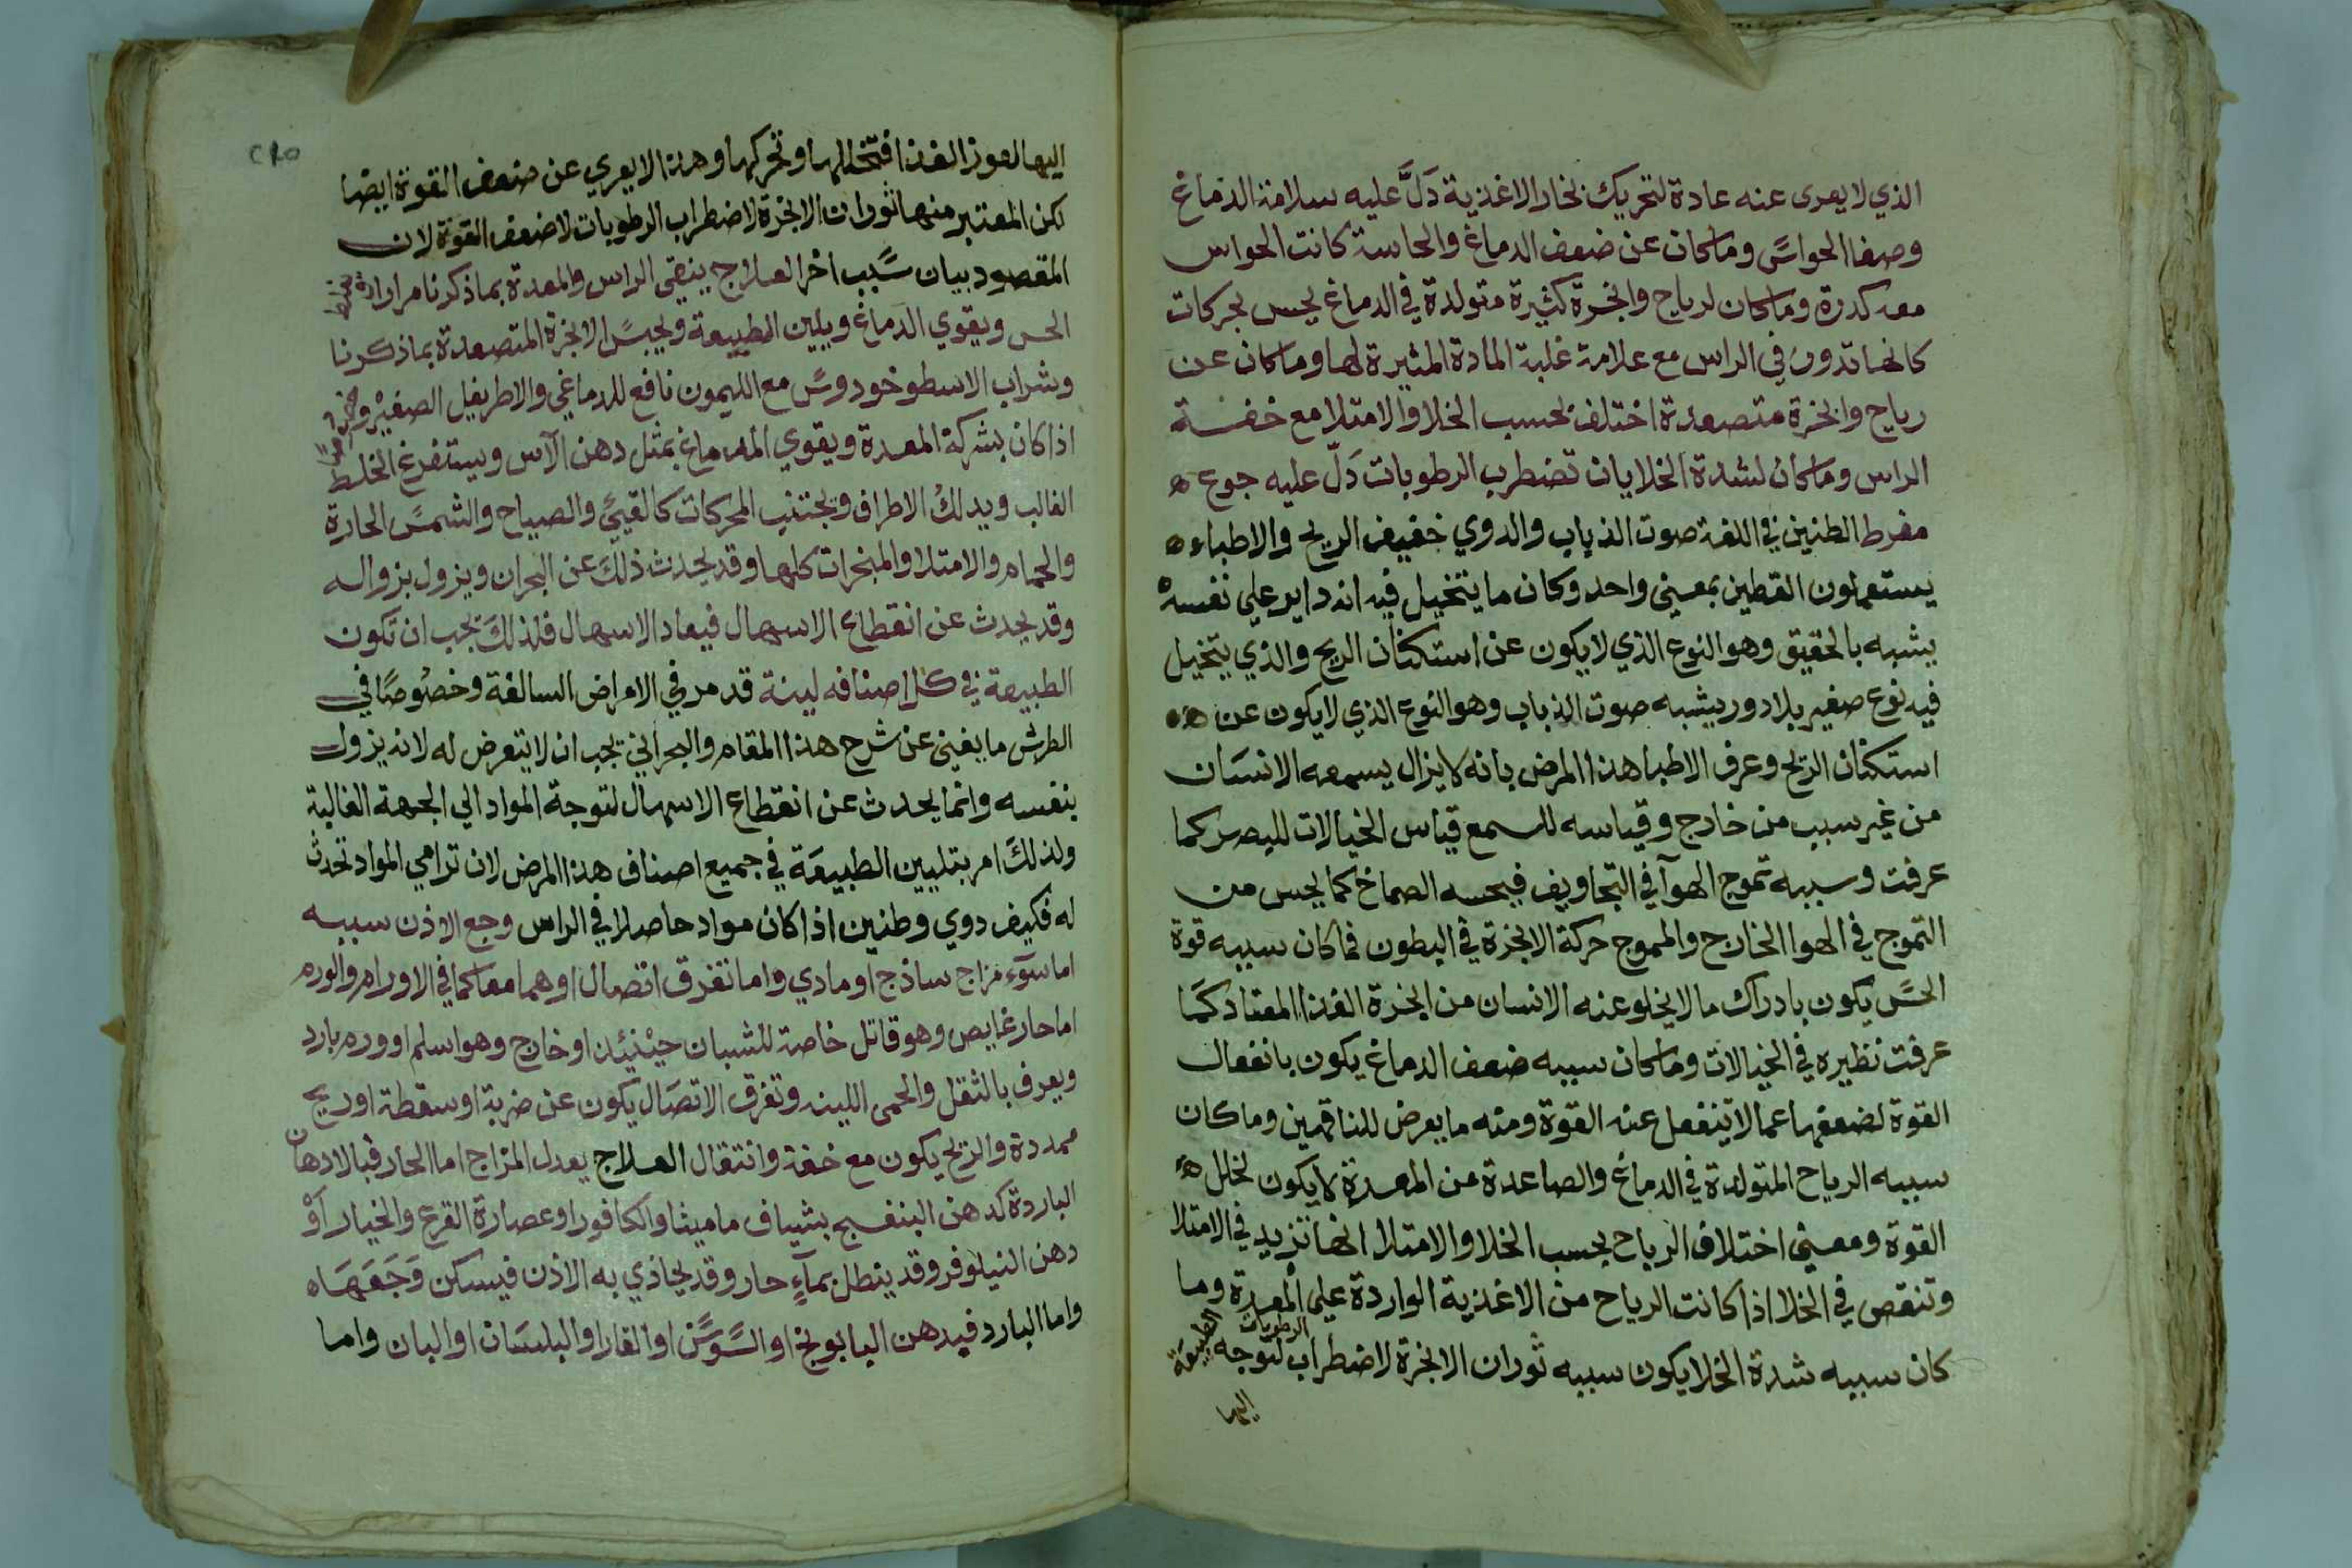 الذي لا يعرى عنه عادة لتحريك بخار الاغذية دَلَّ عليه سلامة الدماغ
وصفا الحواسّ وما كان عن ضعف الدماغ والحاسة كانت الحواس
معه كدرة وما كان لرياح وابخرة كثيرة متولدة في الدماغ يحس بحركات
كانها تدور في الراس مع علامة غلبة المادة المثيرة لها وما كان عن
رياح وابخرة متصعدة اختلف بحسب الخلا والامتلا مع خفة
الراس وما كان لشدة الخلا بان تضطرب الرطوبات دَلّ عليه جوع ه
مفرط الطنين في اللغة صوت الذباب والدوي حفيف الريح والاطباء ه
يستعملون القطين بمعنى واحد وكان ما يتخيل فيه انه داير علي نفسه
يشبه بالحقيق وهو النوع الذي لا يكون عن استكنان الريح والذي يتخيل
فيه نوع صغير بلا دور يشبه صوت الذباب وهو النوع الذي لا يكون عن ه
استكنان الريح وعرف الاطبا هذا المرض بانه لا يزال يسمعه الانسان
من غير سبب من خارج وقياسه للسمع قياس الخيالات للبصر كما
عرفت وسببه تموج الهوآ في التجاويف فيحسه الصماخ كما يحس من
التموج في الهوا الخارج والمموج حركة الابخرة في البطون فما كان سببه قوة
الحسّ يكون بادراك ما لا يخلو عنه الانسان من ابخرة الغذا المعتاد كما
عرفت نظيره في الخيالات وما كان سببه ضعف الدماغ يكون بانفعال
القوة لضعفها عما لا تنفعل عنه القوة ومنه ما يعرض للناقهين وما كان
سببه الرياح المتولدة في الدماغ والصاعدة من المعدة لا يكون لخلل ه
القوة ومعنى اختلاف الرياح بحسب الخلا والامتلا انها تزيد في الامتلا
وتنقص في الخلا اذا كانت الرياح من الاغذية الواردة علي المعدة وما
كان سببه شدة الخلا يكون سببه ثوران الابخرة لاضطراب الرطوبات لتوجه الطبيعة
اليها
اليها لعوز الغذا فتحللها وتحركها وهذا لا يعري عن ضعف القوة ايضا
لكن المعتبر منها ثوران الابخرة لاضطراب الرطوبات لا ضعف القوة لان
المقصود بيان سبب اخر العلاج ينقى الراس والمعدة بما ذكرنا مرارا
الحس ويقوي الدماغ ويلين الطبيعة ويحبس الابخرة المتصعدة بما ذكرنا
وشراب الاسطوخودوس مع الليمون نافع للدماغي والاطريفل الصغير
اذا كان بشركة المعدة ويقوي الدماغ بمثل دهن الآس ويستفرغ الخلط
الغالب ويدلك الاطراف ويجتنب المحركات كالقيئ والصياح والشمس الحارة
والحمام والامتلا والمبخرات كلها وقد يحدث ذلك عن البحران ويزول بزواله
وقد يحدث عن انقطاع الاسهال فيعاد الاسهال فلذلك يجب ان تكون
الطبيعة في كل اصنافه لينة قد مر في الامراض السالفة وخصوصًا في
الطرش ما يغنى عن شرح هذا المقام والبحراني يجب ان لا يتعرض له لانه يزول
بنفسه وانما يحدث عن انقطاع الاسهال لتوجة المواد الي الجهة الغالبة
ولذلك امر بتليين الطبيعَة في جميع اصناف هذا المرض لان ترامي المواد تحدث
له فكيف دوي وطنين اذا كان مواد حاصلا في الراس وجع الاذن سببه
اما سوٓء مزاج ساذج او مادي واما تفرق اتصال او هما معا كما في الاورام والورم
اما حار غايص وهو قاتل خاصة للشبان حينئذ او خارج وهو اسلم او ورم بارد
ويعرف بالثقل والحمى اللينه وتفرق الاتصَال يكون عن ضربة او سقطة او ريح
ممددة والريح يكون مع خفة وانتقال العلاج يعدل المزاج اما الحار فبالادهان
الباردة كدهن البنفسج بشياف ماميثا والكافور او عصارة القرع والخيار اَوْ
دهن النيلوفر وقد ينطل بمآءٍ حار وقد يحاذي به الاذن فيسكن وَجَعَهَا ه
واما البارد فبدهن البابونج او السّوسّن او الغار او البلسَان او البان واما